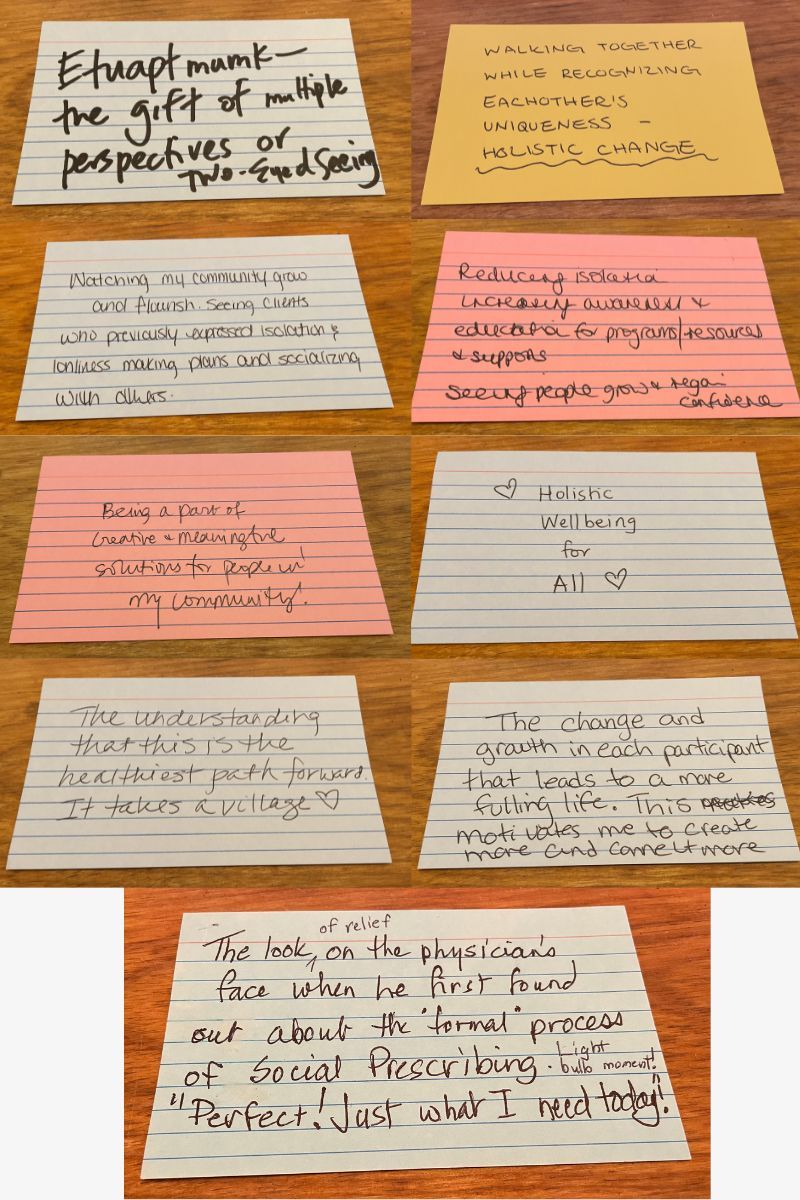 Etuaptmumk—
the gift of multiple
perspectives or
Two-Eyed Seeing
WALKING TOGETHER
WHILE RECOGNIZING
EACHOTHER'S
UNIQUENESS –
HOLISTIC CHANGE
Watching my community grow
and flourish. Seeing clients
who previously expressed isolation &
lonliness making plans and socializing
with others.
Reducing isolation
Increasing awareness &
education for programs/resources
& supports
Seeing people grow & regain
confidence
Being a part of
creative & meaningful
solutions for people in
my community!
♡ Holistic
Wellbeing
for
All ♡
The understanding
that this is the
healthiest path forward.
It takes a village ♡
The change and
growth in each participant
that leads to a more
fulling life. This
motivates me to create
more and connect more
of relief
The look, on the physician's
face when he first found
out about the "formal" process
of Social Prescribing. Light
bulb moment!
"Perfect! Just what I need today!"